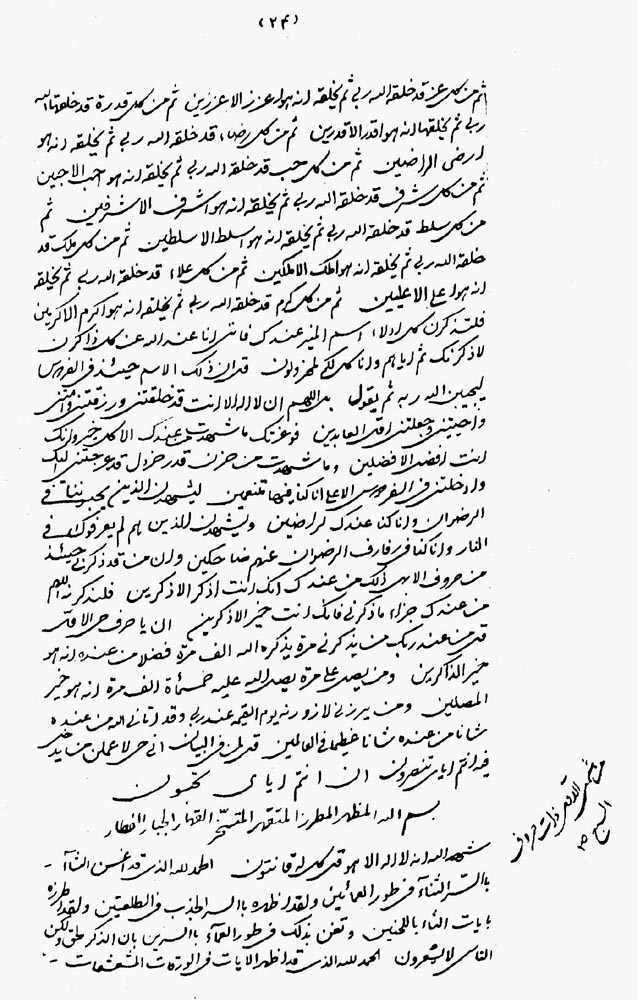 (۲۴)
ثم من كل عز قد خلقه الله ربي ثم يخلقه انه هو اعزز الاعززين ثم من كل قدرة قد خلقها الله
ربي ثم يخلقها انه هو اقدر الاقدرين ثم من كل رضاء قد خلقه الله ربي ثم يخلقه انه هو
ارضى الراضين ثم من كل حب قد خلقه الله ربي ثم يخلقه انه هو احب الاحبين
ثم من كل شرف قد خلقه الله ربي ثم يخلقه انه هو اشرف الاشرفين ثم
من كل سلط قد خلقه الله ربي ثم يخلقه انه هو اسلط الاسلطين ثم من كل ملك قد
خلقه الله ربي ثم يخلقه انه هو املك الاملكين ثم من كل علاء قد خلقه الله ربي ثم يخلقه
انه هو اعلى الاعليين ثم من كل كرم قد خلقه الله ربي ثم يخلقه انه هو اكرم الاكرمين
فلتذكرن كل اولاء اسم عندك فانني انا عند الله عن كل ذاكرن
لاذكرنك ثم اياهم وانا كل لكم قل ان ذلك الاسم حينئذ في الفردوس
ليجيبن الله ربه ثم يقول بلى اللهم ان لا اله الا انت قد خلقتني ورزقتني وامتني
واحييتني وجعلتني افق العابدين فوعزتك ما شهدت من عندك الا كل خير وانك
انت افضل الافضلين وما شهدت من حزن قدر خردل قد عرجتني اليك
وادخلتني في الفردوس الاعلى انا كنا فيها متنعمين ليشهدن الذين في
الرضوان وانا كنا عندك لراضين ويشهدن الذين هم لم يعرفوك في
النار وانا كنا في رفارف الرضوان عنهم ضاحكين وان من قد ذكرني حينئذ
من حروف الاسم ذلك من عندك انك انت اذكر الاذكرين فلتذكرنه اللهم
من عندك جزاء ما ذكرني فانك انت خير الاذكرين ان يا حرف حي الافق
قل من عند ربك من يذكرني مرة يذكره الله الف مرة فضلا من عنده انه هو
خير الذاكرين ومن يصل علي مرة يصل الله عليه خمسمأة الف مرة انه هو خير
المصلين ومن يزرني لازورنه يوم القيمة عند ربي وقد اتاني الله من عنده
شانا من عنده شانا عظيما في العالمين قل لمن في البيان اني حي لا عملن من
فيه انتم اياي تنصرون ان انتم اياي تحبون
بسم الله المظهر المطرز المتقهر المتسخر القهار الجبار افطار
شهد الله انه لا اله الا هو قل كل له قانتون الحمد لله الذي قد اغنس الثنآء
با السر الثنآء في طور العمائين ولقد اظهره باالسر الجذب في الطلعتين ولقد اطرزه
بايات الثناء باللحنين وتغن بذلك في طور العمآء باالسرين بان الذكر لحق ولكن
الناس لا يشعرون الحمد لله الذي قد اظهر الايات في الورقات المشعشعات